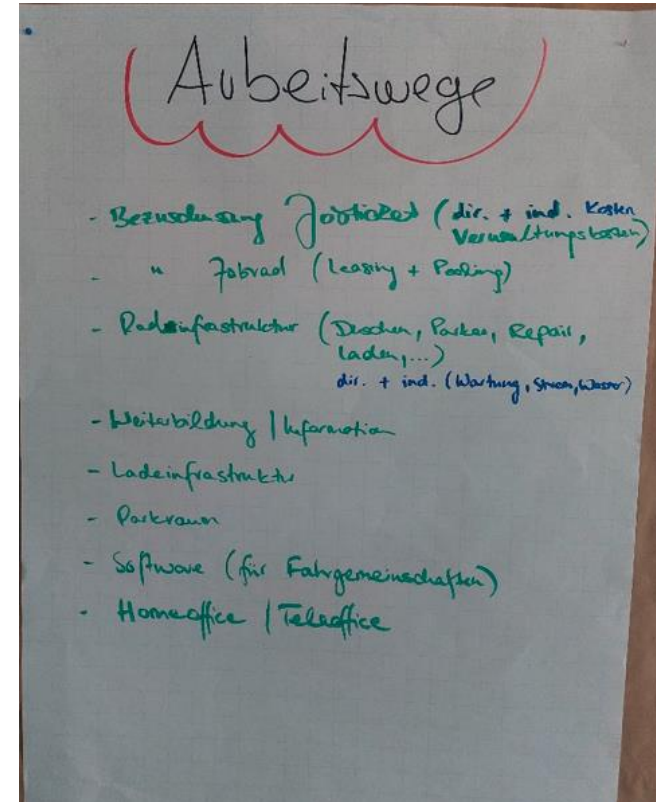 Arbeitswege
- Bezuschussung Jobticket (dir. + ind. Kosten
Verwaltungskosten)
- " Jobrad (Leasing + Pooling)
- Radinfrastruktur (Duschen, Parken, Repair,
Laden, ...)
dir. + ind. (Wartung, Strom, Wasser)
- Weiterbildung | Information
- Ladeinfrastruktur
- Parkraum
- Software (für Fahrgemeinschaften)
- Homeoffice | Teleoffice